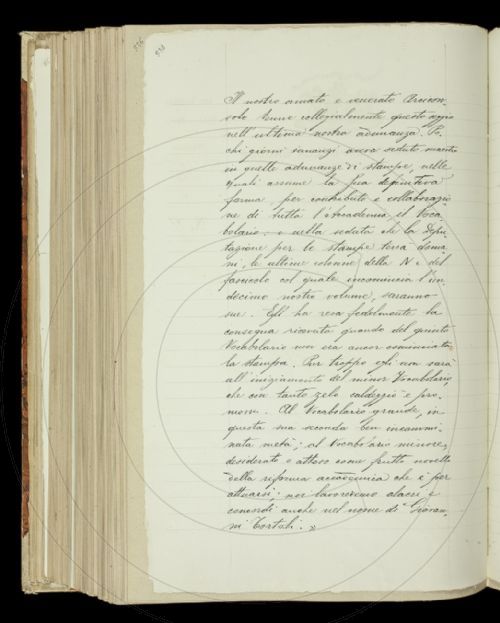 Il nostro amato e venerato Arcicon-
solo tenne collegialmente questo seggio
nell'ultima nostra adunanza. Po-
chi giorni innanzi aveva seduto
in quelle adunanze di stampe, nelle
quali assume la sua definitiva
forma, per contributo e collaborazio-
ne di tutta l'Accademia, il Voca-
bolario: e nella seduta che la Depu-
tazione per le stampe terrà doma-
ni, le ultime colonne della N e del
fascicolo col quale incomincia l'un-
decimo nostro volume, saranno
sue. Egli ha resa fedelmente la
consegna ricevuta quando del quinto
Vocabolario non era ancor cominciata
la stampa. Pur troppo egli non sarà
all'iniziamento del minor Vocabolario
che con tanto zelo caldeggiò e pro-
mosse. Al Vocabolario grande, in
questa sua seconda ben incammi-
nata metà; al Vocabolario minore,
desiderato e atteso come frutto novello
della riforma accademica che è per
attuarsi; noi lavoreremo alacri e
concordi anche nel nome di Giovan-
ni Tortoli.